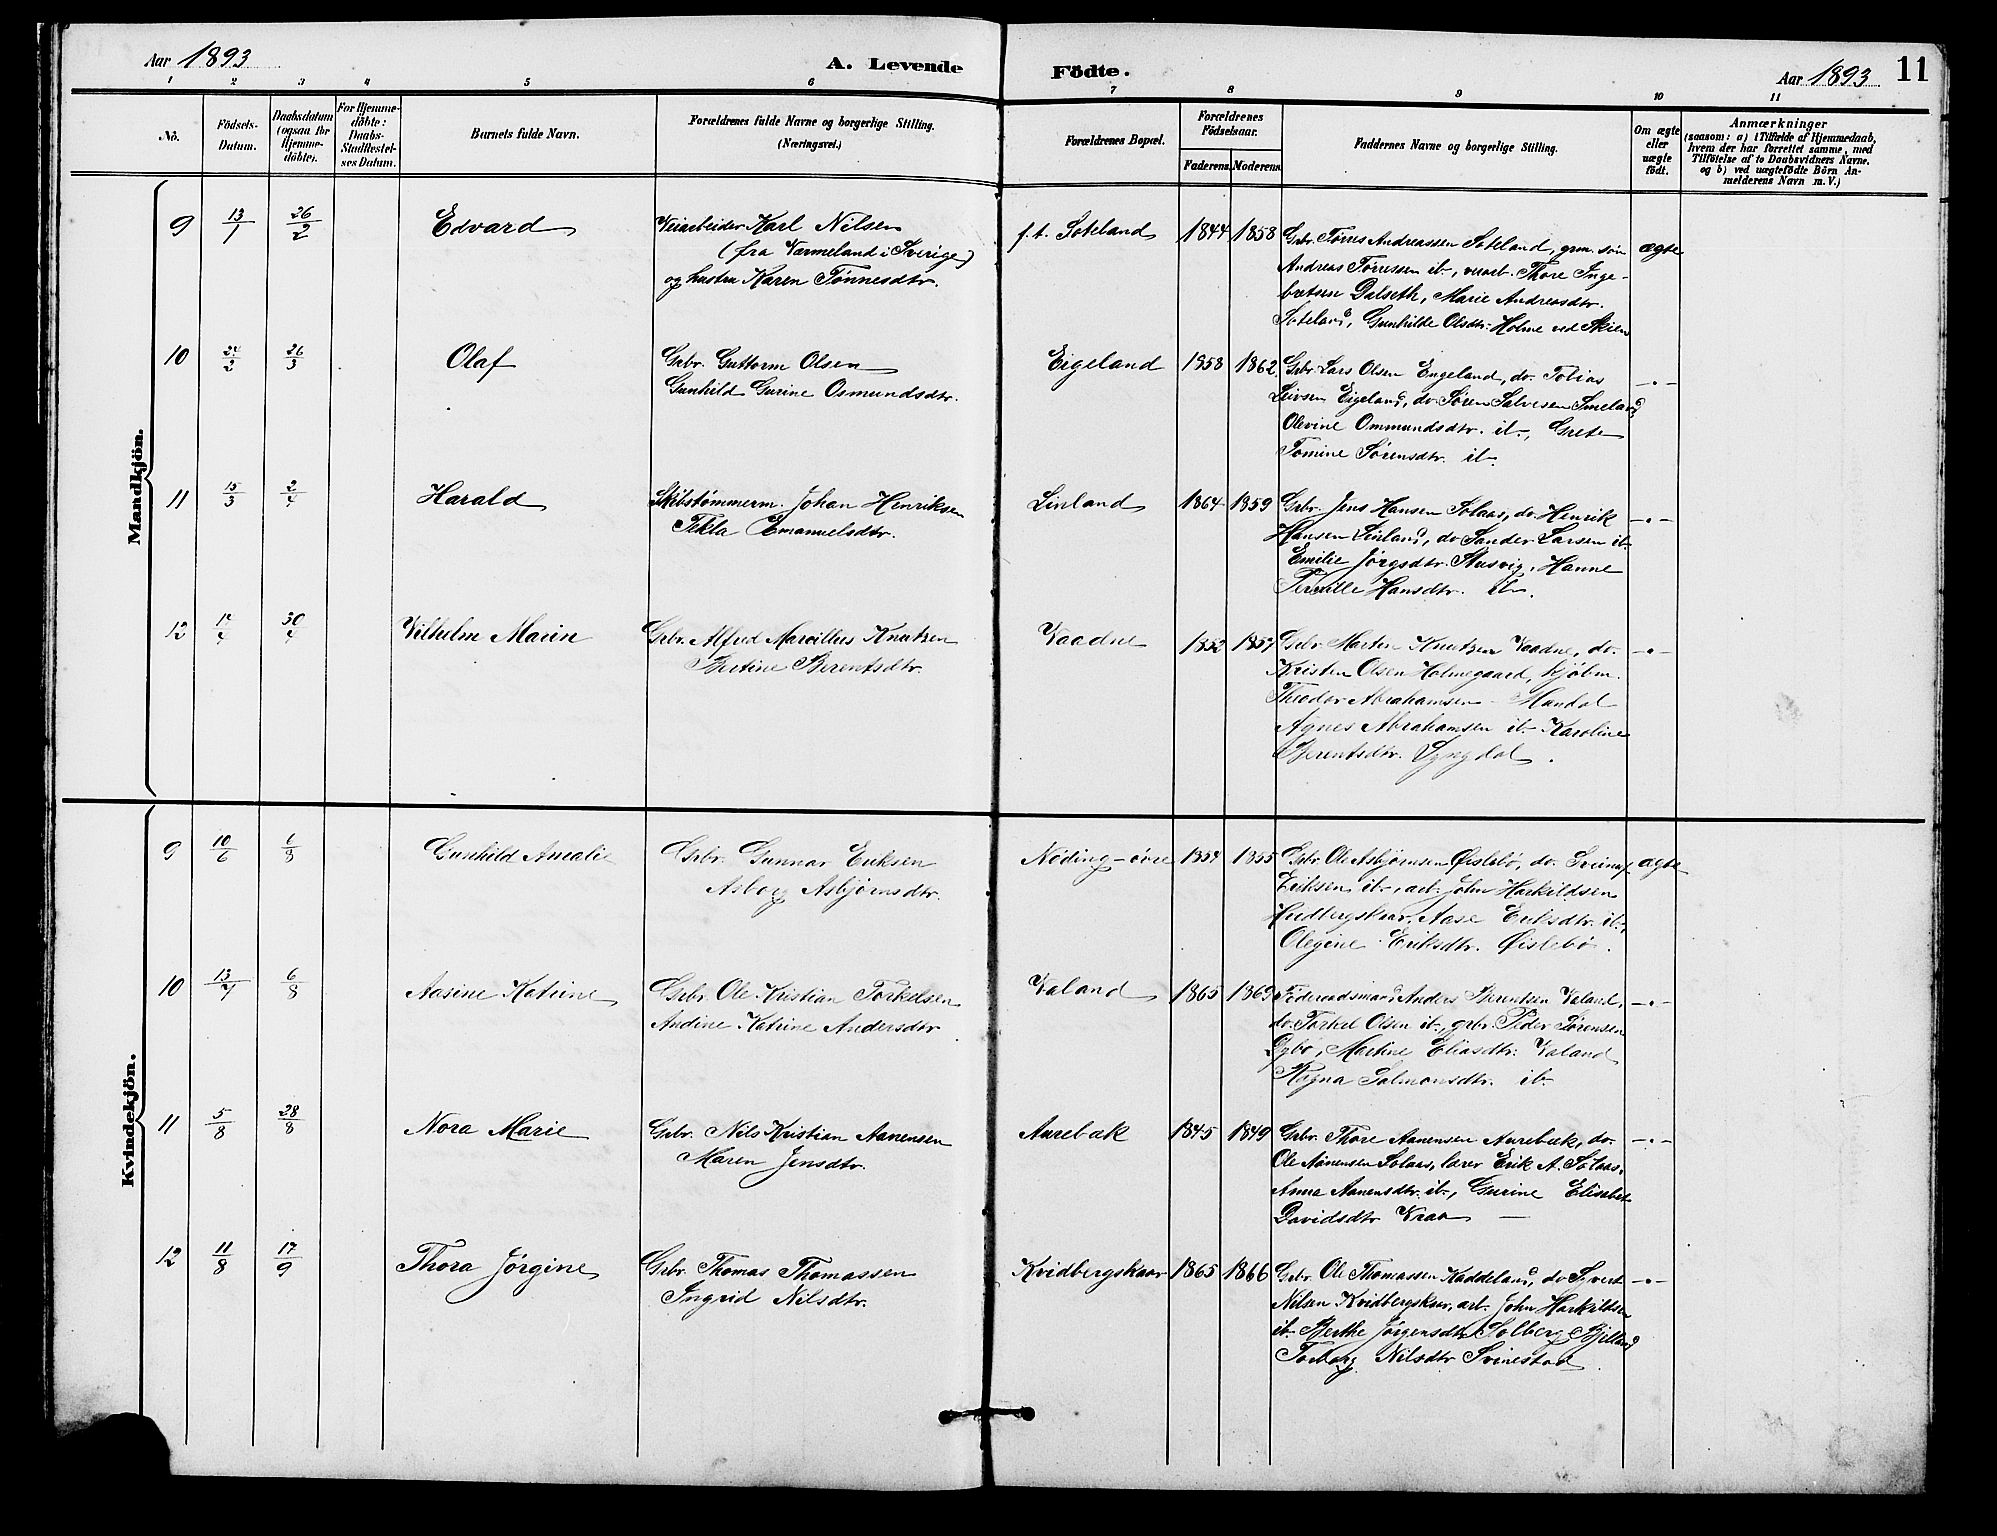 Aar 1893
A. Levende Födte.
Aar 1893
11
1 2 3 4 5 6 7 8 9 10 11
No.
Födsels-
Datum.
Daabsdatum
(ogsaa for
Hjemme-
döbte).
For Hjemme-
döbte:
Daabs-
Stadfæstel-
ses Datum.
Barnets fulde Navn.
Forældrenes fulde Navne og borgerlige Stilling.
(Næringsvei.)
Forældrenes Bopæl.
Forældrenes
Födselsaar.
Faderens. Moderens.
Faddernes Navne og borgerlige Stilling.
Om ægte
eller
uægte
födt.
Anmærkninger
(saasom: a) i Tilfælde af Hjemmedaab,
hvem der har forrettet samme, med
Tilföielse af to Daabsvidners Navne.
og b) ved uægtefödte Börn An-
melderens Navn m. V.)
Mandkjön.
9 13/1 26/2 Edvard
Veiarbeider Karl Nilsen
(fra Værmeland i Sverige)
og hustru Karen Tønnesdtr.
f. t. Soteland 1844 1858
Grbr. Tørres Andreassen Soteland, grm. søn
Andreas Tørressen ib., veiarb. Thore Inge-
bretsen Dalseth, Marie Andreasdtr.
Soteland, Gunhilde Olsdtr. Holme ved Skien
ægte
10 24/2 26/3 Olaf
Grbr. Guttorm Olsen
Gunhild Gurine Osmundsdtr.
Eigeland 1858 1862
Grbr. Lars Olsen Engeland, do. Tobias
Leivsen Eigeland, do Søren Salvesen Smeland
Olevine Ommundsdtr. ib., Grete
Tomine Sørensdtr. ib.
-"-
11 15/3 2/4 Harald
Skibstømmerm. Johan Henriksen
Tekla Emanuelsdtr.
Linland 1864 1859
Grbr. Jens Hansen Solaas, do. Henrik
Hansen Linland, do Sander Larsen ib.
Emilie Jørgsdtr. Stusvig, Hanne
Pernille Hansdtr. ib.
-"-
12 30/4 Vilhelm Marin
Grbr. Alfred Marcillius Knutsen
Bertine Berentsdtr.
Vaadne 1852 1857
Grbr. Marten Knutsen Vaadne, do.
Kristen Olsen Holmegaard, kjøbm.
Theodor Abrahamsen Mandal
Agnes Abrahamsen ib. Karoline
Berentsdtr. Lyngdal.
-"-
Kvindekjön.
9 10/6 6/8 Gunhild Amalie
Grbr. Gunnar Eriksen
Asborg Asbjørnsdtr.
Nøding-øvre 1854 1855
Grbr. Ole Asbjørnsen Øislebø, do.
Eriksen ib., arb. John Harkildsen
Aase Eriksdtr. ib.,
Olegine Eriksdtr. Øislebø.
ægte
10 13/7 6/8 Aasine Katrine
Grbr. Ole Kristian Torkelsen
Andine Katrine Andersdtr
Valand 1865 1869
Føderaadsmand Anders Berentsen Valand,
do. Torkel Olsen ib., grbr. Peder Sørensen
Øybø, Martine Eliasdtr. Valand
Ragna Salmonsdtr. ib.
-"-
11 5/8 28/8 Nora Marie
Grbr. Nils Kristian Aanensen
Maren Jensdtr.
Aurebæk 1845 1849
Grbr. Thore Aanensen Aurebæk, do.
Ole Aanensen Solaas, lærer Erik A. Solaas,
Anna Aanensdtr. ib., Gurine Elisabet
Davidsdtr Vraa
-"-
12 11/8 17/9 Thora Jørgine
Grbr. Thomas Thomassen
Ingrid Nilsdtr.
Kvidbergskaar 1865 1866
Grbr. Ole Thomassen Kaddeland, do Syvert
Nilsen Kvidbergskar, arb. John Harkildsen
ib. Berthe Jørgensdtr. Solberg Bjelland
Torborg Nilsdtr Svinestad.
-"-